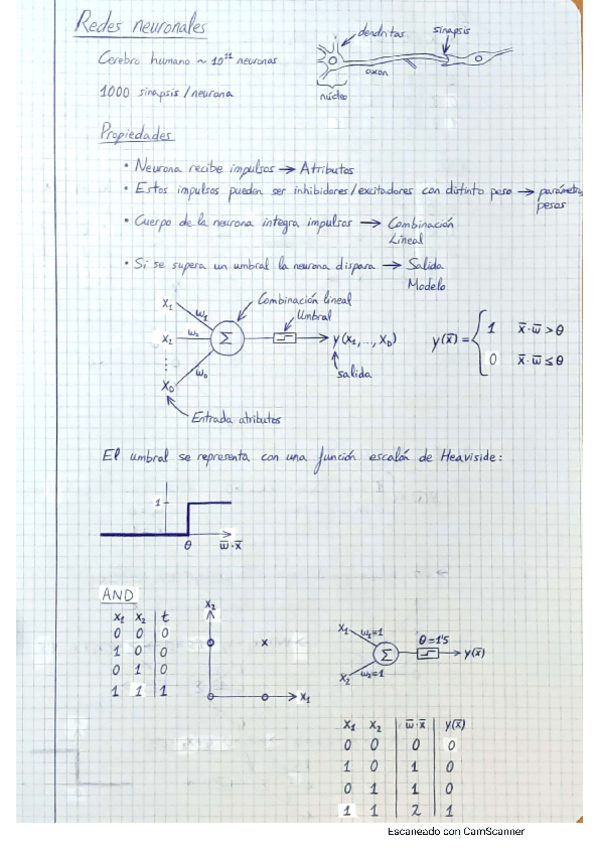 Redes neuronales
dendritas
sinapsis
Cerebro humano ~ 10¹¹ neuronas
axon
núcleo
1000 sinapsis / neurona
Propiedades
• Neurona recibe impulsos → Atributos
• Estos impulsos pueden ser inhibidores/excitadores con distinto peso → parámetros
pesos
• Cuerpo de la neurona integra impulsos → Combinación
Lineal
• Si se supera un umbral la neurona dispara → Salida
Modelo
Combinación lineal
Umbral
x₁ ω₁
x₂ ω₂ Σ → y(x₁, ..., x_D)
⋮
x_D ω_D
salida
Entrada atributos
y(x̄) = { 1 x̄·ω̄ > θ
0 x̄·ω̄ ≤ θ
El umbral se representa con una función escalón de Heaviside:
1
θ ω̄·x̄
AND
x₁ x₂ t
0 0 0
1 0 0
0 1 0
1 1 1
x₂
x
x₁
x₁ ω₁=1
Σ θ=1'5 → y(x̄)
x₂ ω₂=1
x₁ x₂ ω̄·x̄ y(x̄)
0 0 0 0
1 0 1 0
0 1 1 0
1 1 2 1
Escaneado con CamScanner